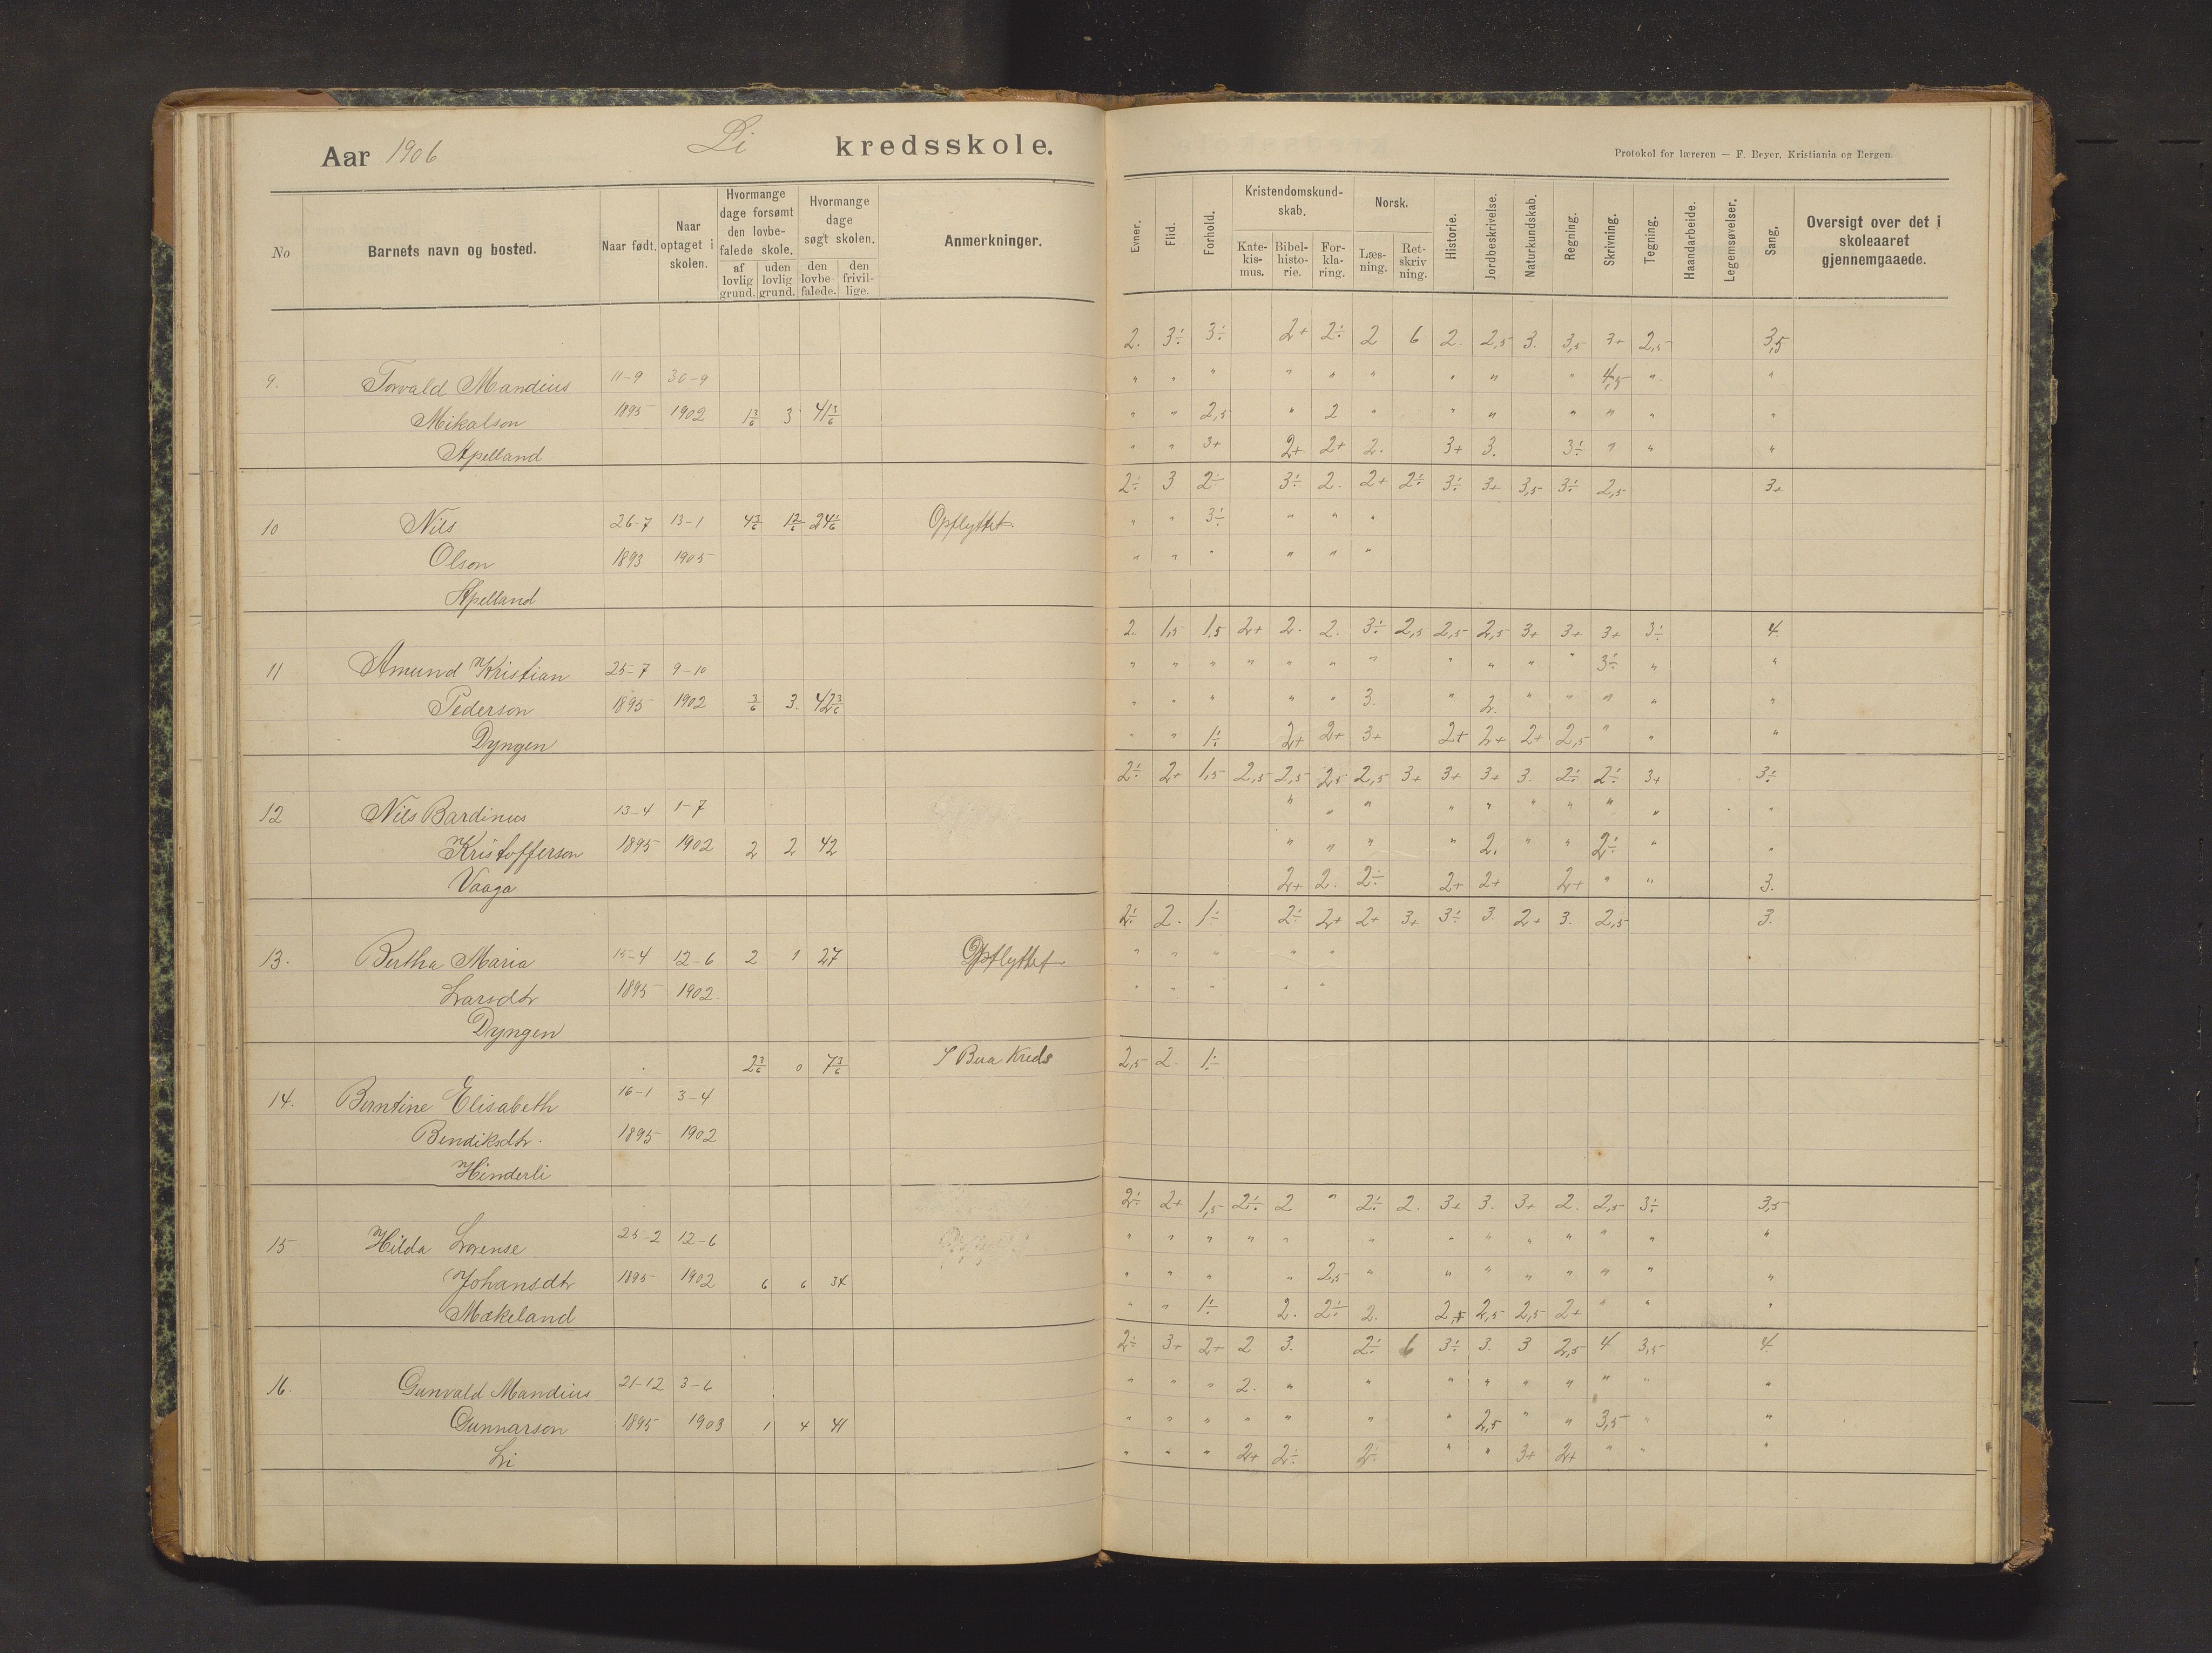 Aar 1906 Li kredsskole.
Protokol for læreren — F. Beyer, Kristiania og Bergen.
No Barnets navn og bosted. Naar født. Naar optaget i skolen. Hvormange dage forsømt den lovbefalede skole. af lovlig grund. uden lovlig grund. Hvormange dage søgt skolen. den lovbefalede. den frivillige. Anmerkninger.
Evner. Flid. Forhold. Kristendomskundskab. Katekismus. Bibelhistorie. Forklaring. Norsk. Læsning. Retskrivning. Historie. Jordbeskrivelse. Naturkundskab. Regning. Skrivning. Tegning. Haandarbeide. Legemsøvelser. Sang. Oversigt over det i skoleaaret gjennemgaaede.
2. 3÷ 3÷ 2+ 2÷ 2 6 2. 2,5 3. 3,5 3+ 2,5 3,5
9. Torvald Mandius 11-9 30-9 " " " " " " " " " 4,5 " "
Mikalson 1895 1902 1 3/6 3 41 3/6 " " 2,5 " 2 " " " " " " "
Apelland " " 3+ 2+ 2+ 2. 3+ 3. 3÷ " " "
2÷ 3 2÷ 3÷ 2. 2+ 2÷ 3÷ 3+ 3,5 3÷ 2,5 3+
10 Nils 26-7 13-1 24 1/6 Opflyttet. " " 3÷ " " "
Olson 1893 1905 " " " " " "
Apelland
2. 1,5 1,5 2+ 2. 2. 3÷ 2,5 2,5 2,5 3+ 3+ 3+ 3÷ 4
11 Amund Kristian 25-7 9-10 " " " " " " " " " " " 3÷ " "
Pederson 1895 1902 3/6 3. 42 3/6 " " " " " 3. " 2. " " " " "
Dyngen " " 1÷ 2+ 2+ 3+ 2+ 2+ 2+ 2,5 " " "
2÷ 2+ 1,5 2,5 2,5 2,5 2,5 3+ 3+ 3+ 3. 2÷ 2÷ 3+ 3÷
12 Nils Bardinus 13-4 1-7 " " " " " " " " " "
Kristofferson 1895 1902 2 2 42 " " " " 2. " " 2÷ " "
Vaaga 2+ 2. 2÷ 2+ 2+ 2+ " " 3.
2÷ 2. 1÷ 2÷ 2+ 2+ 3+ 3÷ 3. 2+ 3. 2,5 3.
13. Bertha Maria 15-4 12-6 2 1 27 Opflyttet " " " " "
Larsdtr 1895 1902. " " " " "
Dyngen
2 3/6 0 7 3/6 I Bua Kreds 2,5 2. 1÷
14. Berntine Elisabeth 16-1 3-4
Bendiksdtr. 1895 1902
Hinderli
2÷ 2+ 1,5 2÷ 2 " 2÷ 2. 3+ 3. 3+ 2. 2,5 3÷ 3,5
15 Hilda Lorense 25-2 12-6 " " " " " " " " " " " " "
Johansdtr 1895 1902 6 6 34 " " " " 2,5 " " " " " " " "
Mækeland " " 1÷ 2. 2÷ 2. 2+ 2,5 2,5 2+ " " "
2÷ 3+ 2+ 2 3. 2÷ 6 3÷ 3. 3 2,5 4 3,5 4
16. Gunvald Mandius 21-12 3-6 " " " 2. " " " " " " " " "
Gunnarson 1895 1903 1 4 41 " " " " " " " 2,5 " " 3,5 " "
Li " " " 2+ 2÷ 2÷ " " 3+ 2+ " " "